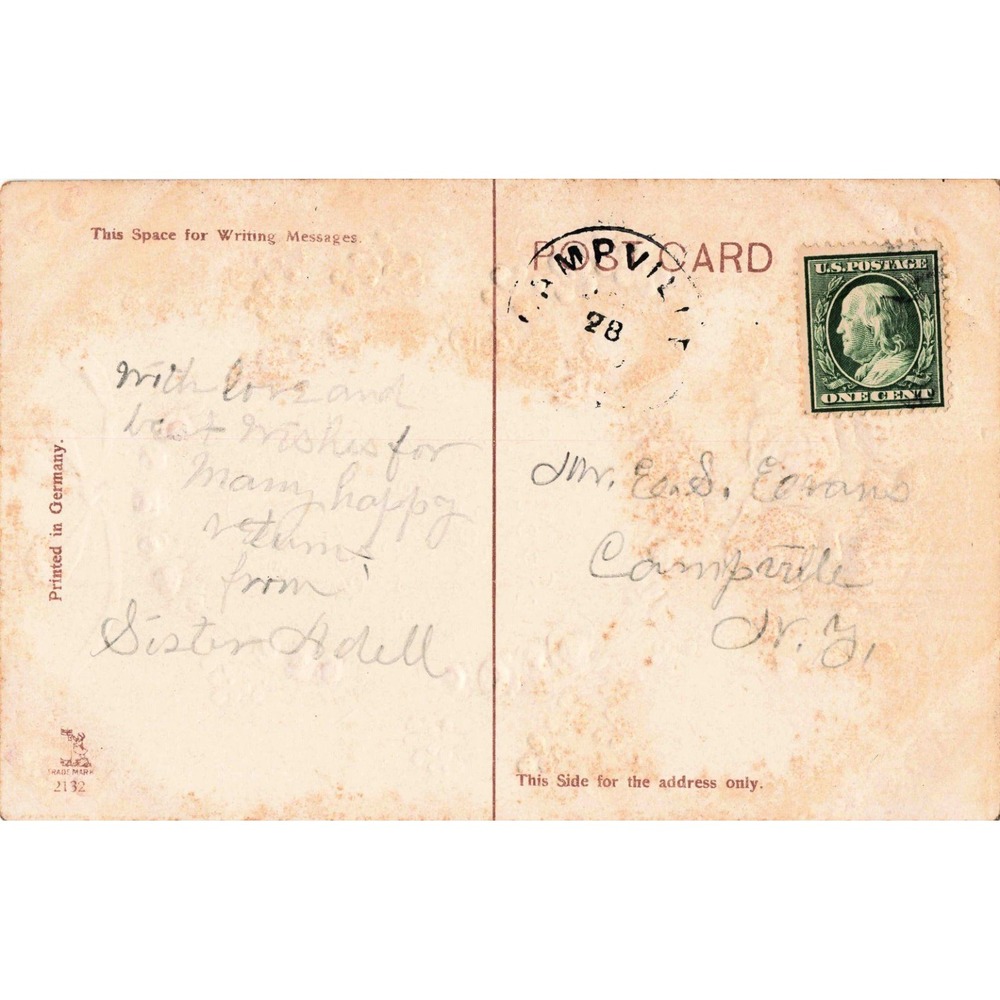 This Space for Writing Messages.
With love and
best Wishes for
Many happy
returns
from
Sister Adell
Printed in Germany.
TRADE MARK
2132
POST CARD
CAMPVILL
28
U.S. POSTAGE
ONE CENT
Mr. E. S. Evans
Campville
N. Y.
This Side for the address only.